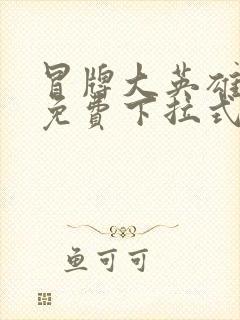 冒牌大英雄
免費下拉式
鱼可可